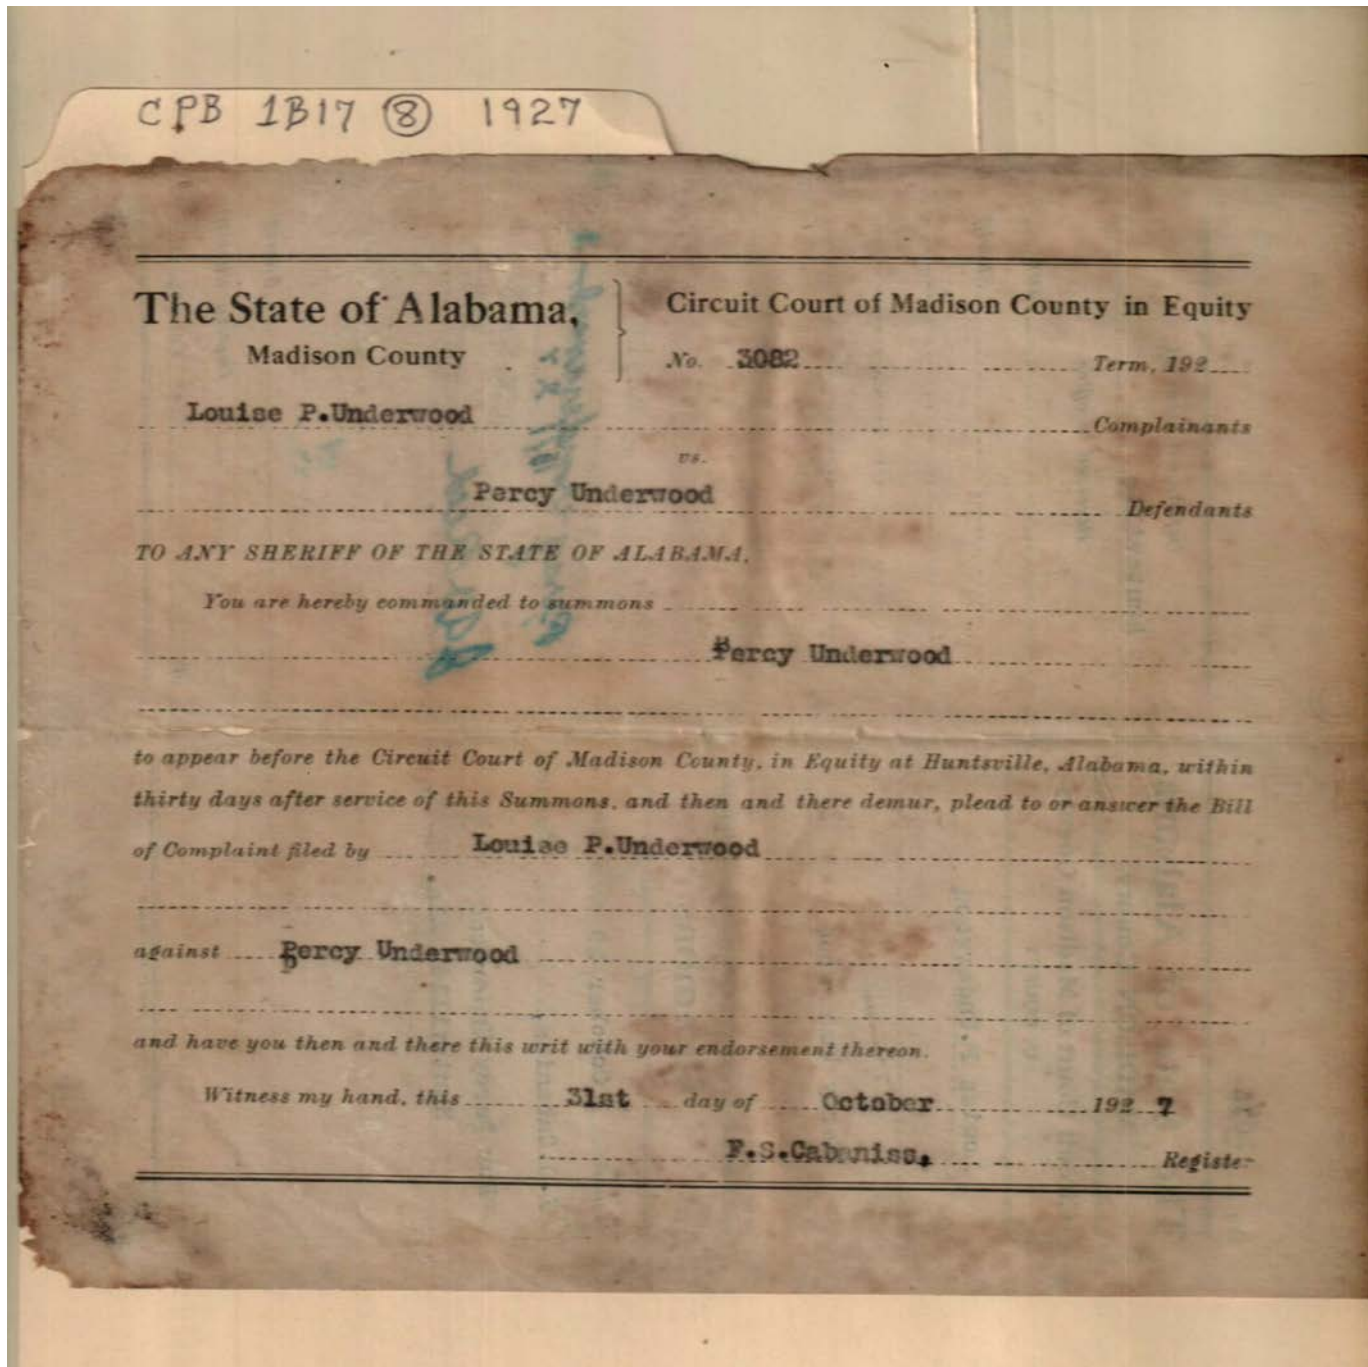 CPB 1B17 8 1927
The State of Alabama,
Madison County
Circuit Court of Madison County in Equity
No. 3082 Term, 192
Louise P.Underwood
Complainants
vs.
Percy Underwood
Defendants
TO ANY SHERIFF OF THE STATE OF ALABAMA,
You are hereby commanded to summons
Percy Underwood
to appear before the Circuit Court of Madison County, in Equity at Huntsville, Alabama, within
thirty days after service of this Summons, and then and there demur, plead to or answer the Bill
of Complaint filed by Louise P.Underwood
against Percy Underwood
and have you then and there this writ with your endorsement thereon.
Witness my hand, this 31st day of October 192 7
F.S.Cabaniss, Register